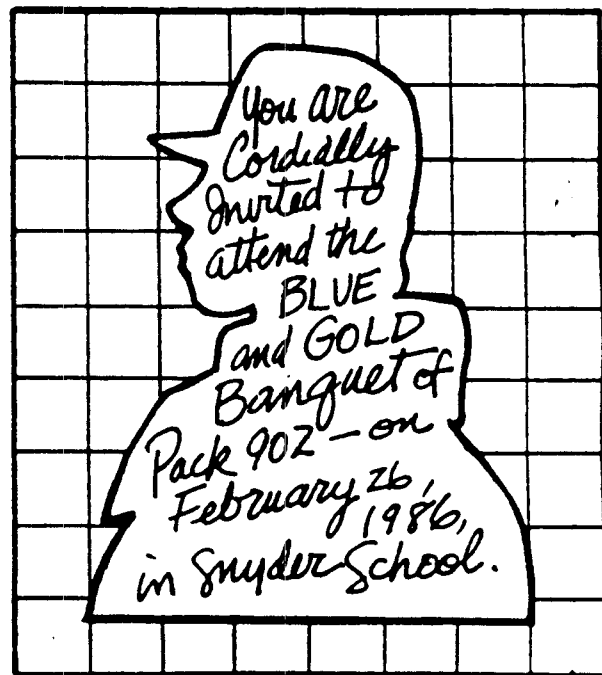 You are
Cordially
Invited to
attend the
BLUE
and GOLD
Banquet of
Pack 902 — on
February 26,
1986,
in Snyder School.